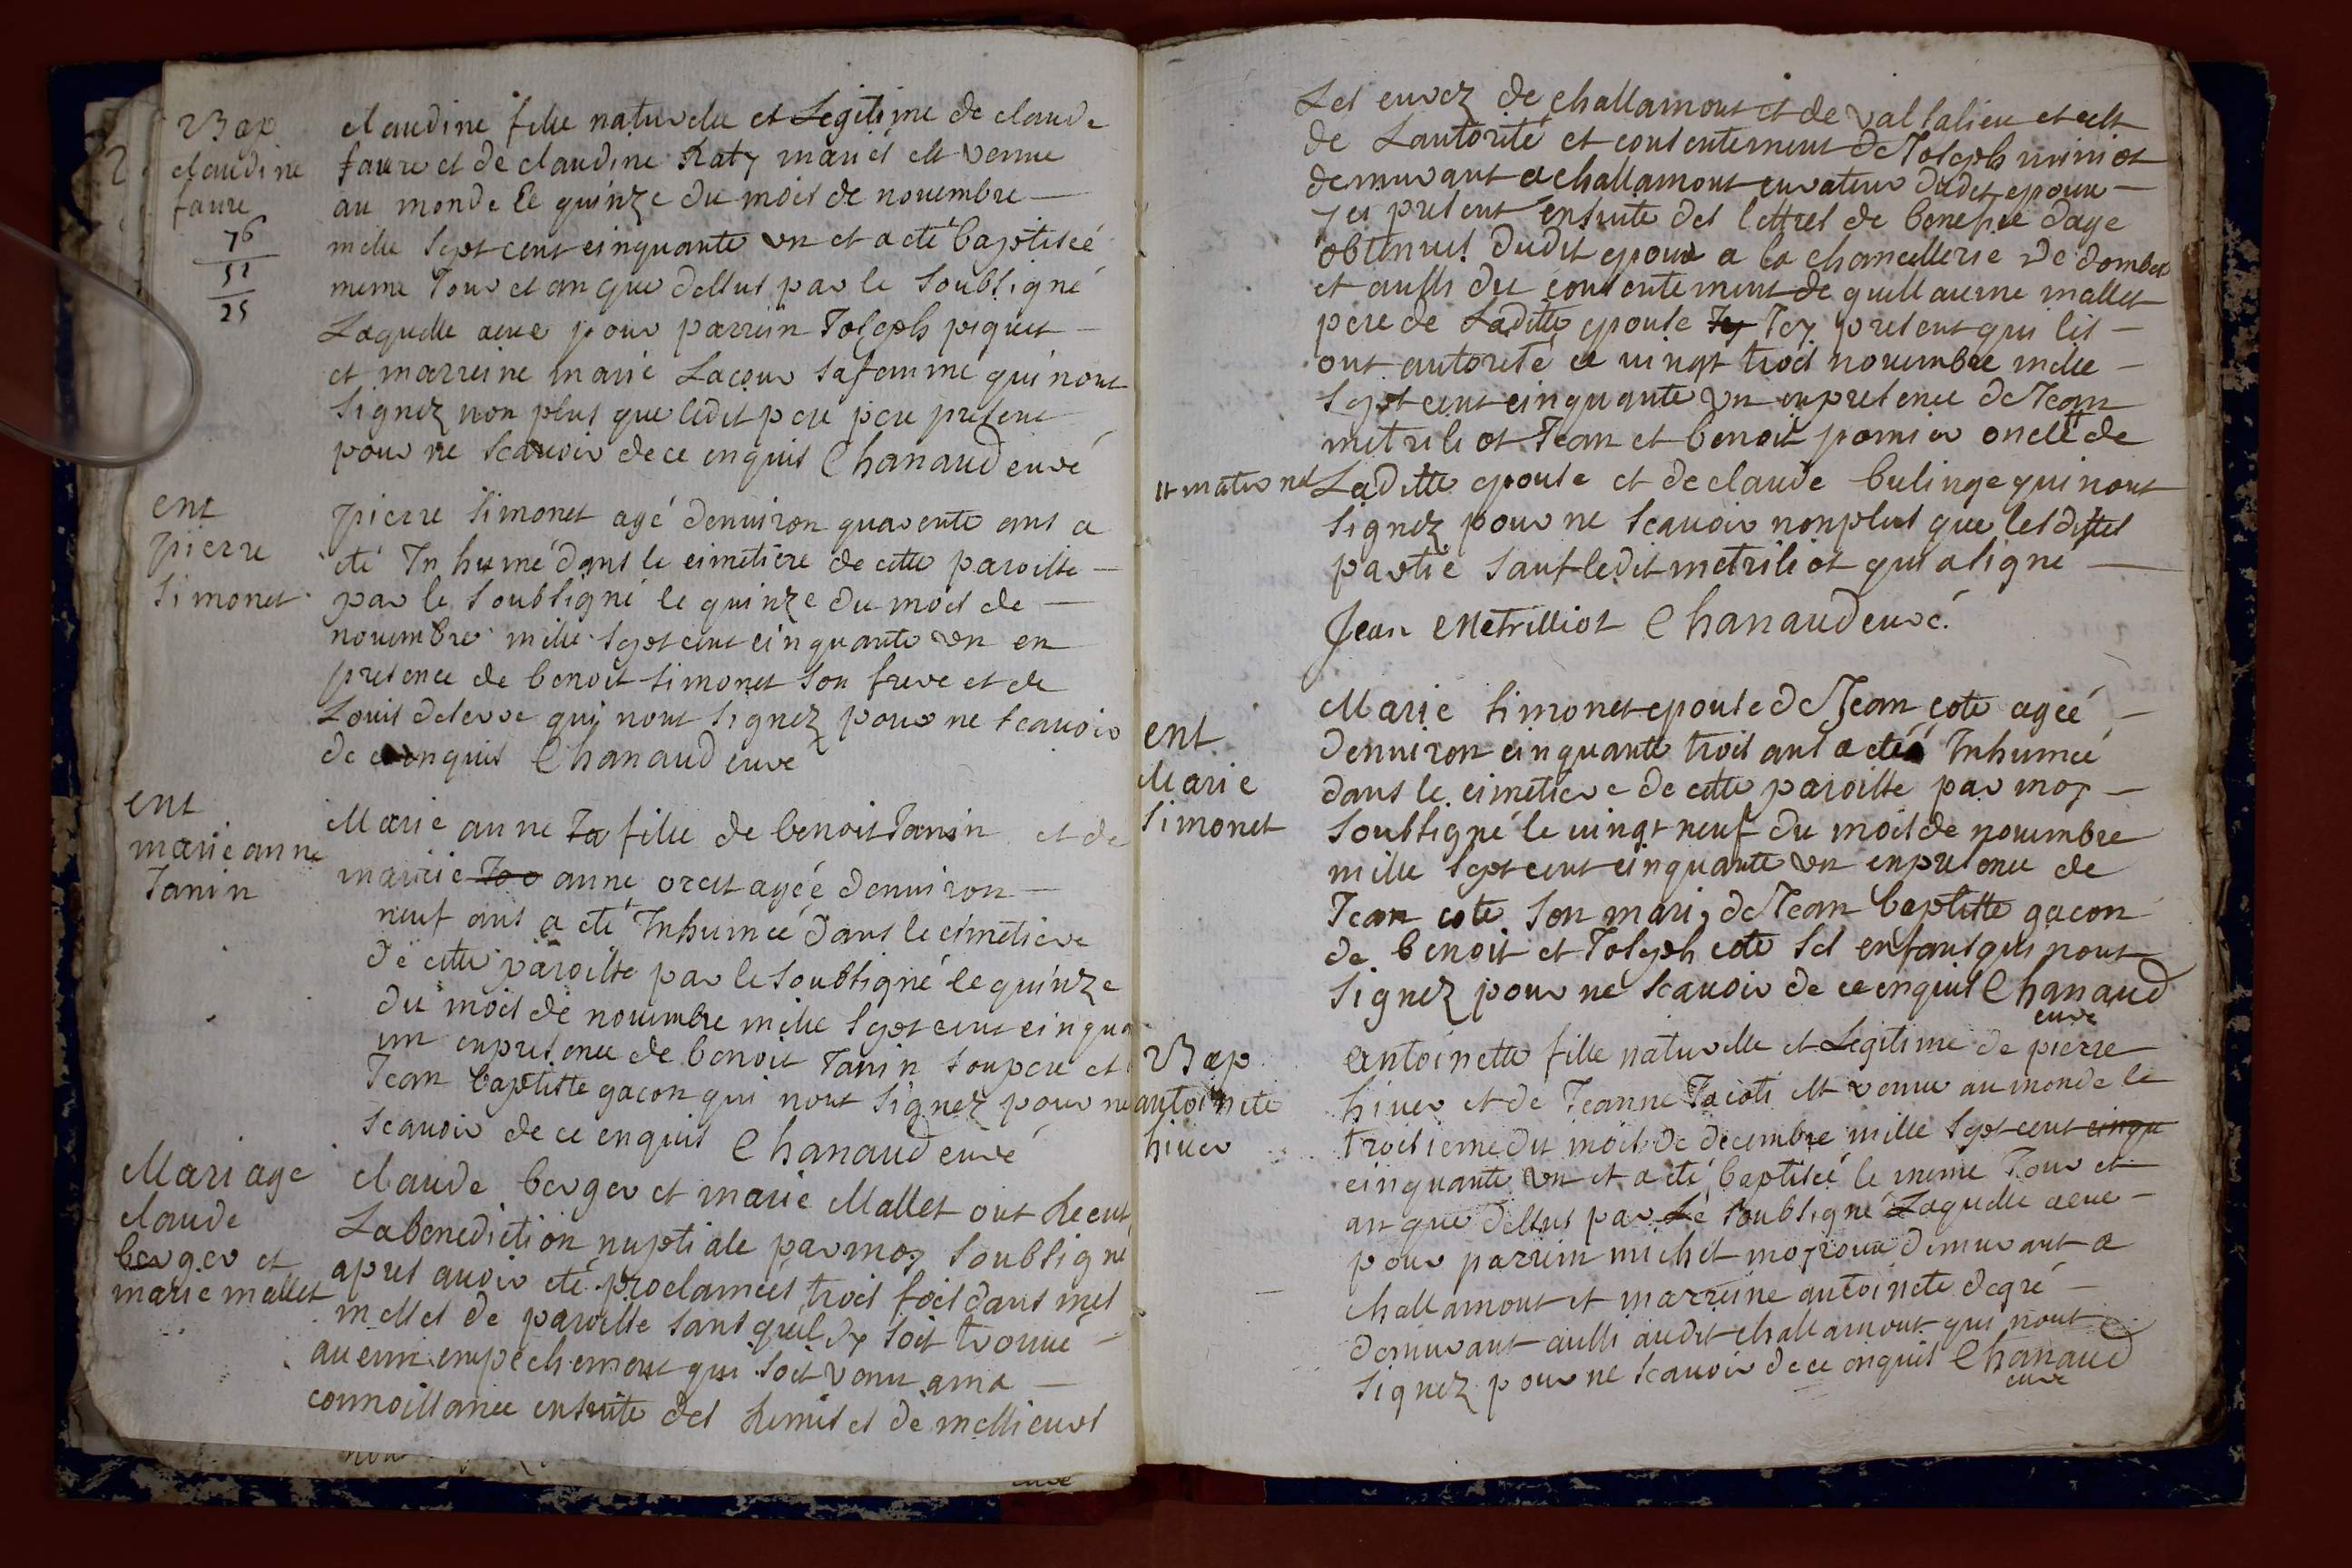 Bap
claudine
faure
76
51
25
claudine fille naturelle et Legitime de claude
faure et de claudine Raty mariés est venue
au monde le quinze du mois de novembre
mille sept cent cinquante un et a eté baptiseé
meme Jour et an que dessus par le soubsigné
Laquelle a eue pour parrein Joseph piquet
et marreine marie Lacour sa femme qui nont
signez non plus que ledit pere pere present
pour ne scavoir de ce enquis Chanaud curé
ent
pierre
simonet
pierre simonet agé denuiron quarente ans a
eté Inhumé dans le cimetiere de cette paroisse
par le soubsigné le quinze du mois de
nouembre mille sept cent cinquante un en
presence de benoit simonet son frere et de
Louis deserre qui nont signez pour ne scauoir
de ce enquis Chanaud curé
ent
marie anne
Janin
Marie anne Ja fille de benoit Janin et de
mairie anne orcet ageé denuiron
neuf ans a eté Inhumeé dans le cimetiere
de cette paroisse par le soubsigné le quinze
du mois de nouembre mille sept cent cinqua
un en presence de benoit Janin son pere et
Jean baptiste gacon qui nont signez pour ne
scauoir de ce enquis Chanaud curé
Mariage
claude
berger et
marie mallet
claude berger et marie Mallet ont Receut
La benediction nuptiale par moy soubsigné
apres auoir eté proclameés trois fois dans mes
messes de paroisse sans quil dy soit trouué
aucun empechement qui soit venu a ma
connoissance ensuite des Remises de messieurs
Les curez de challamont et de Valsalieu et cest
de Lautorité et consentement de Joseph miniot
demurant a challamont curateur dudit epoux
yci present ensuite des lettres de benefice dage
obtenues dudit epoux a la chancellerie de dombes
et aussi du consentement de guillaume mallet
pere de Laditte epouse Icy present qui les
ont autorisé ce vingt trois nouembre mille
sept cent cinquante un en presence de Jean
metriliot Jean et benoit pomier oncle de
et maternel
Laditte epouse et de claude bulinge qui nont
signez pour ne scauoir non plus que lesdittes
partie sauf ledit metriliot qui a signé
Jean Metrilliot Chanaud curé.
ent
Marie
simonet
Marie simonet epouse de Jean cote ageé
denuiron cinquante trois ans a eté Inhumeé
dans le cimetiere de cette paroisse par moy
soubsigné le vingt neuf du mois de nouembre
mille sept cent cinquante un en presence de
Jean cote son mari, de Jean baptiste gacon
de benoit et Joseph cote ses enfans qui nont
signez pour ne scauoir de ce enquis Chanaud
curé
Bap
antoinete
hiuer
antoinette fille naturelle et Legitime de pierre
hiuer et de Jeanne Jacoti est venue au monde le
troisieme du mois de decembre mille sept cent cinqu
cinquante un et a eté baptiseé le meme Jour et
an que dessus par Le soubsigné Laquelle a eue
pour parrein michel moyroux demurant a
challamont et marreine antoinete degré
demurant aussi audit challamont qui nont
signez pour ne scauoir de ce enquis Chanaud
curé